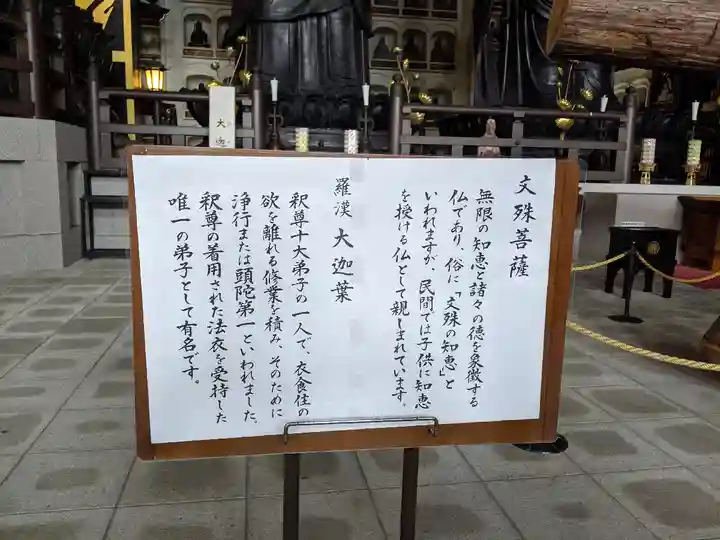 文殊菩薩
無限の知恵と諸々の徳を象徴する
仏であり、俗に「文殊の知恵」と
いわれますが、民間では子供に知恵
を授ける仏として親しまれています。
羅漢 大迦葉
釈尊十大弟子の一人で、衣食住の
欲を離れる修業を積み、そのために
浄行または頭陀第一といわれました。
釈尊の着用された法衣を受持した
唯一の弟子として有名です。
大迦